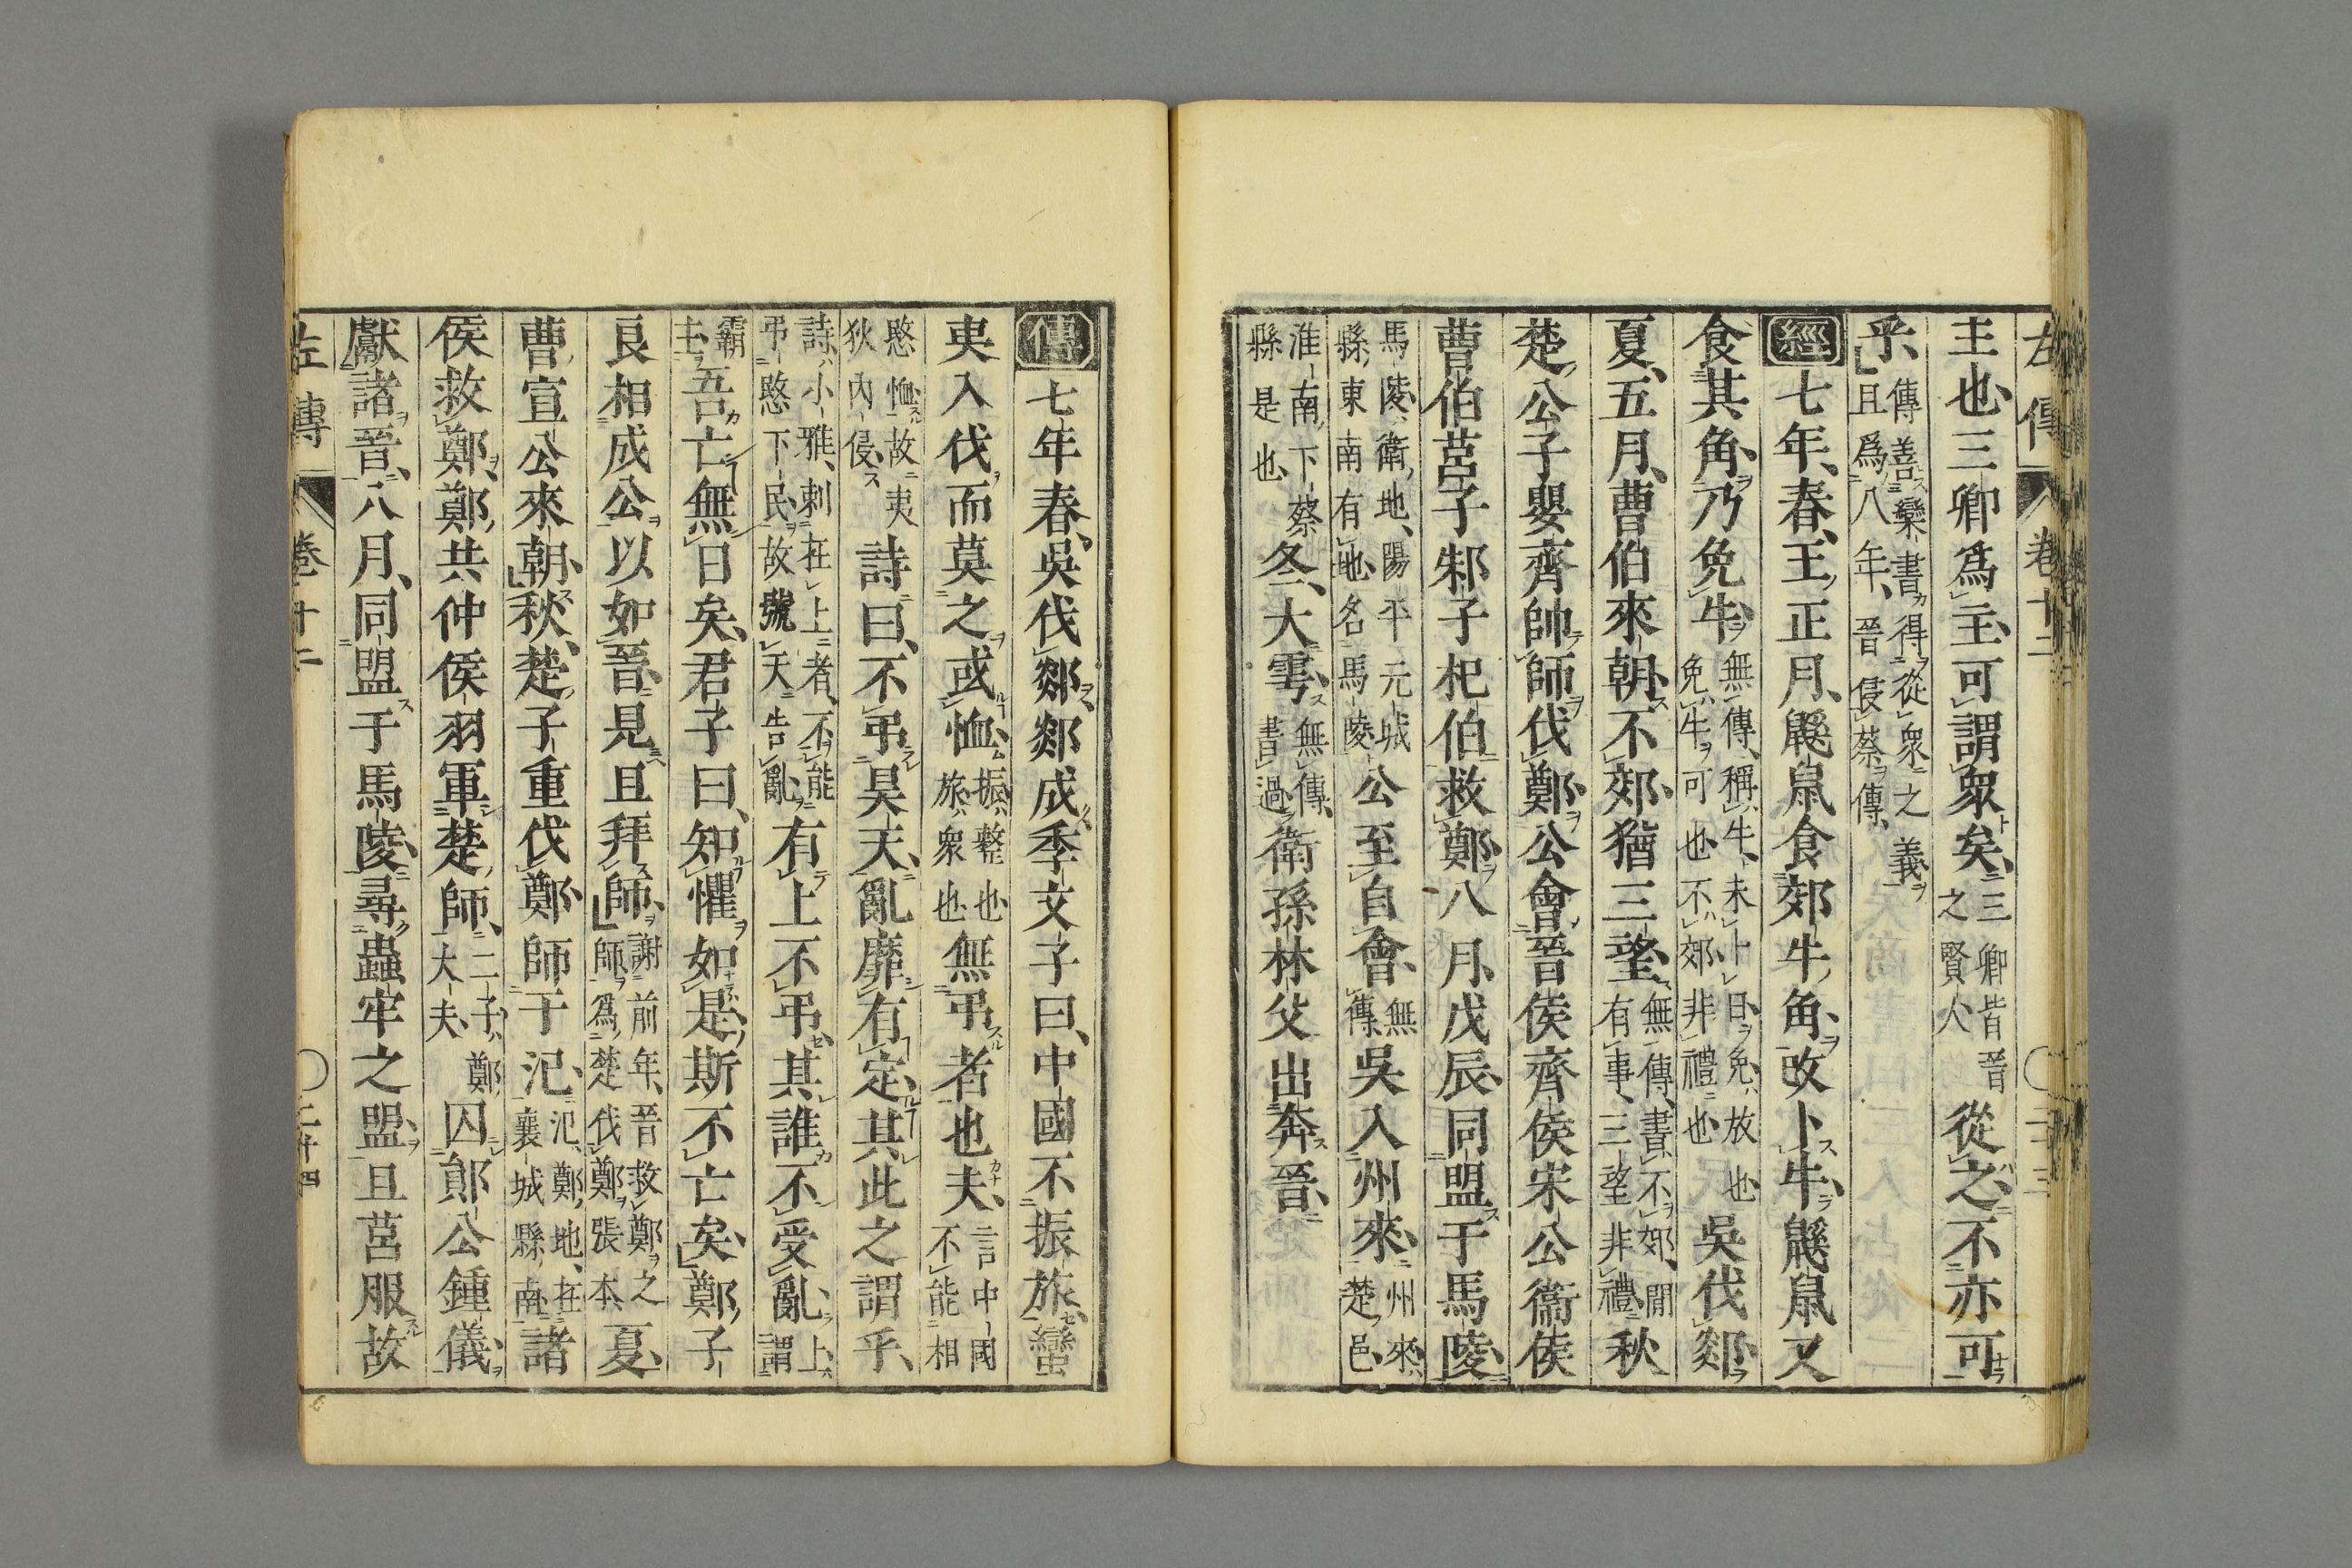 左傳 卷十二
主也三卿爲主可謂衆矣三卿皆晉之賢人從之不亦可
乎傳善欒書得從衆之義且爲八年晉侵蔡傳
經七年春王正月鼷鼠食郊牛角改卜牛鼷鼠又
食其角乃免牛無傳稱牛未卜日免放也免牛可也不郊非禮也吳伐郯
夏五月曹伯來朝不郊猶三望無傳書不郊間有事三望非禮秋
楚公子嬰齊帥師伐鄭公會晉侯齊侯宋公衞侯
曹伯莒子邾子杞伯救鄭八月戊辰同盟于馬陵
馬陵衛地陽平元城縣東南有地名馬陵公至自會無傳吳入州來州來楚邑
淮南下蔡縣是也冬大雩無傳書過衛孫林父出奔晉
傳七年春吳伐郯郯成季文子曰中國不振旅蠻
夷入伐而莫之或恤振整也旅衆也無弔者也夫言中國不能相
愍恤故夷狄內侵詩曰不弔昊天亂靡有定其此之謂乎
詩小雅刺在上者不能弔愍下民故號天告亂有上不弔其誰不受亂上謂
霸主吾亡無日矣君子曰知懼如是斯不亡矣鄭子
良相成公以如晉見且拜師謝前年晉救鄭之師爲楚伐鄭張本夏
曹宣公來朝秋楚子重伐鄭師于氾氾鄭地在襄城縣南諸
侯救鄭鄭共仲侯羽軍楚師二子鄭大夫囚鄖公鍾儀
獻諸晉八月同盟于馬陵尋蟲牢之盟且莒服故
左傳 卷十二 二十四